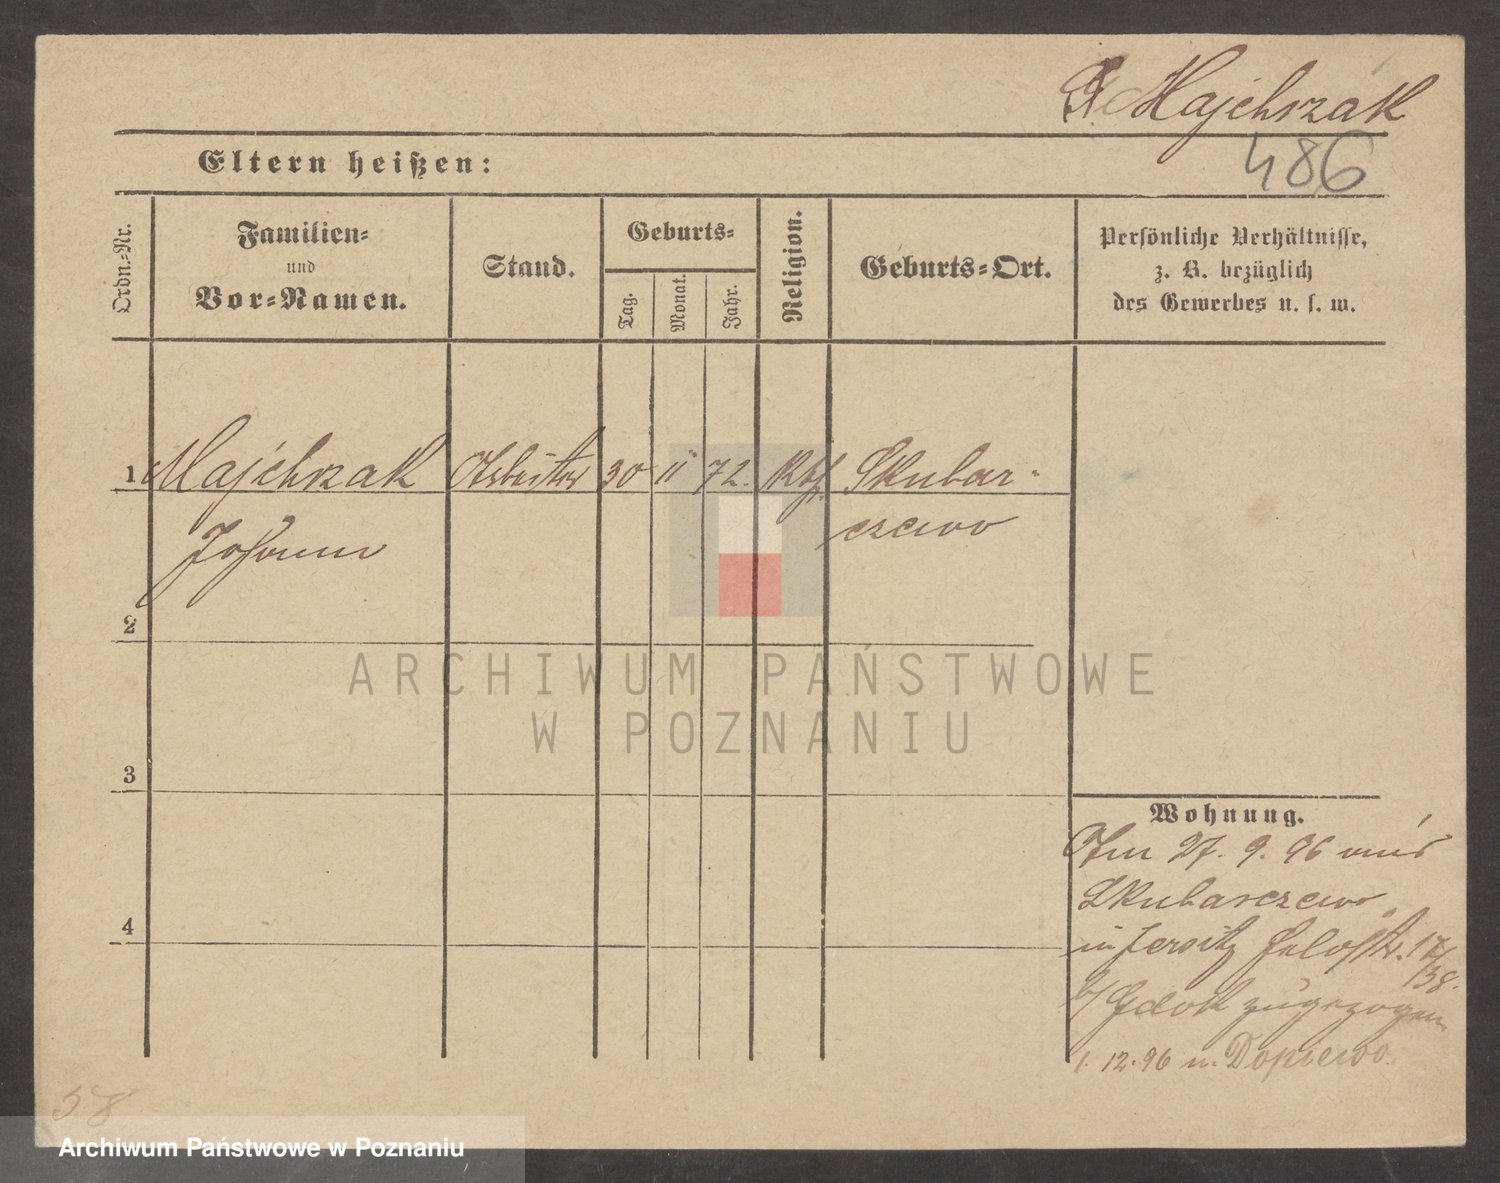 Majchrzak
Eltern heißen:
486
Ordn.-Nr.
Familien-
und
Vor-Namen.
Stand.
Geburts-
Tag.
Monat.
Jahr.
Religion.
Geburts-Ort.
Persönliche Verhältnisse,
z. B. bezüglich
des Gewerbes u. s. w.
1 Majchrzak Arbeiter 30 11 72. Kth. Skubar-
Johann czewo
2
3
4
Wohnung.
Am 27. 9. 96 aus
Skubarczewo
in Jersitz
b/ zugezogen
1. 12. 96 n. Dopiewo.
58
ARCHIWUM PAŃSTWOWE
W POZNANIU
Archiwum Państwowe w Poznaniu